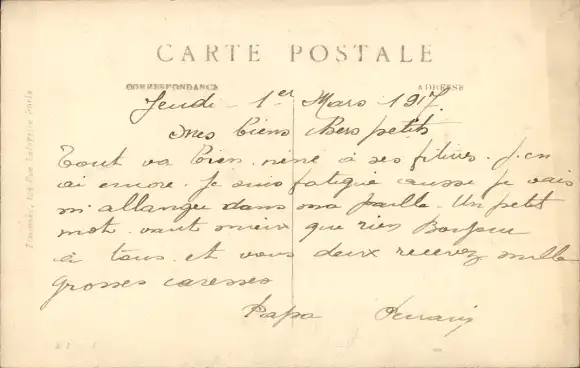 CARTE POSTALE
CORRESPONDANCE
ADRESSE
Jeudi - 1er Mars 1917.
Mes biens chers petits
Tout va bien. même à ses . J'en
ai encore. Je suis fatigué aussi je vais
m'allanger dans ma paille. Un petit
mot. vaut mieux que rien Bonjour
à tous. et vous deux recevez mille
grosses caresses
Papa